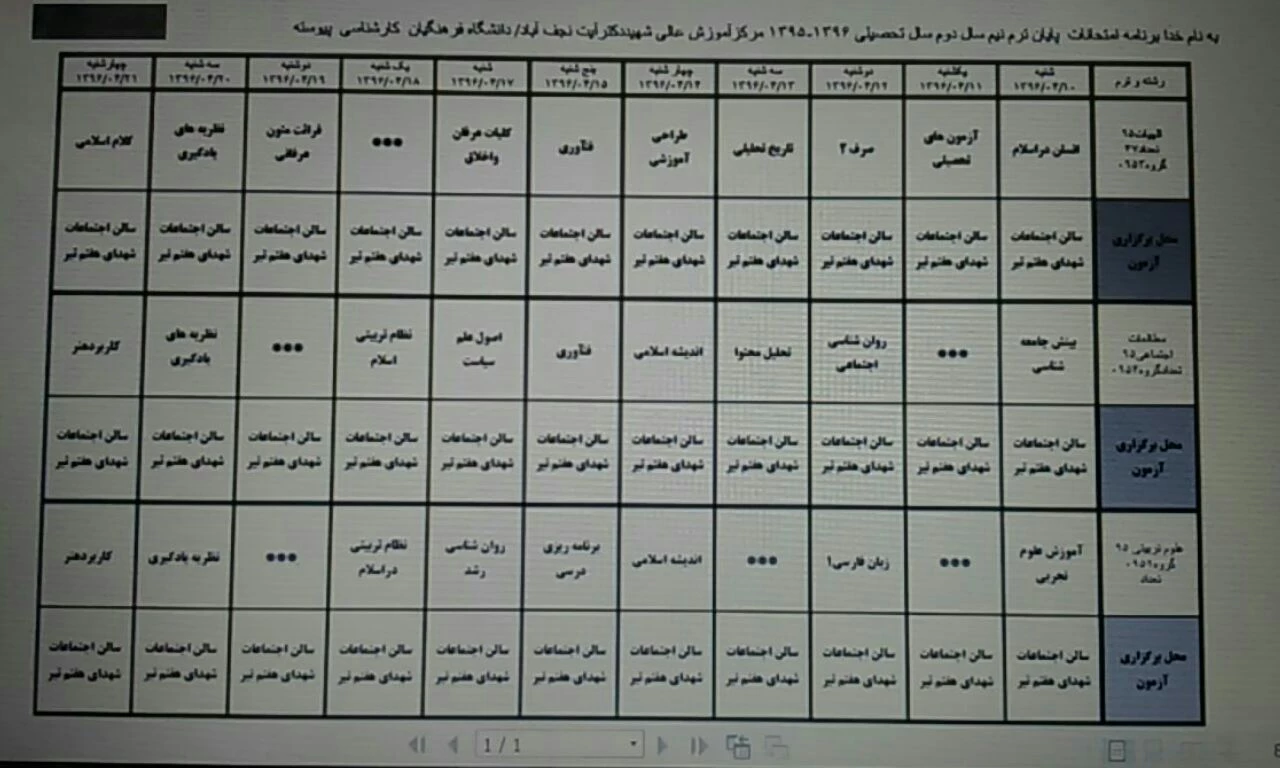 به نام خدا برنامه امتحانات پایان ترم نیم سال دوم سال تحصیلی ۱۳۹۶-۱۳۹۵ مرکزآموزش عالی شهیددکترآیت نجف آباد/ دانشگاه فرهنگیان کارشناسی پیوسته
رشته و ترم شنبه یکشنبه دوشنبه سه شنبه چهار شنبه پنج شنبه شنبه یک شنبه دوشنبه سه شنبه چهارشنبه
۱۳۹۶/۰۴/۱۰ ۱۳۹۶/۰۴/۱۱ ۱۳۹۶/۰۴/۱۲ ۱۳۹۶/۰۴/۱۳ ۱۳۹۶/۰۴/۱۴ ۱۳۹۶/۰۴/۱۵ ۱۳۹۶/۰۴/۱۷ ۱۳۹۶/۰۴/۱۸ ۱۳۹۶/۰۴/۱۹ ۱۳۹۶/۰۴/۲۰ ۱۳۹۶/۰۴/۲۱
الهیات۹۵ آزمون های طراحی کلیات عرفان قرائت متون نظریه های
تعداد۳۷ انسان دراسلام صرف ۲ تاریخ تحلیلی فنآوری ●●● کلام اسلامی
گروه۰۹۵۳ تحصیلی آموزشی واخلاق عرفانی یادگیری
محل برگزاری سالن اجتماعات سالن اجتماعات سالن اجتماعات سالن اجتماعات سالن اجتماعات سالن اجتماعات سالن اجتماعات سالن اجتماعات سالن اجتماعات سالن اجتماعات سالن اجتماعات
آزمون شهدای هفتم تیر شهدای هفتم تیر شهدای هفتم تیر شهدای هفتم تیر شهدای هفتم تیر شهدای هفتم تیر شهدای هفتم تیر شهدای هفتم تیر شهدای هفتم تیر شهدای هفتم تیر شهدای هفتم تیر
مطالعات بینش جامعه روان شناسی اصول علم نظام تربیتی نظریه های
اجتماعی۹۵ ●●● تحلیل محتوا اندیشه اسلامی فنآوری ●●● کاربردهنر
تعدادگروه۰۹۵۲ شناسی اجتماعی سیاست اسلام یادگیری
محل برگزاری سالن اجتماعات سالن اجتماعات سالن اجتماعات سالن اجتماعات سالن اجتماعات سالن اجتماعات سالن اجتماعات سالن اجتماعات سالن اجتماعات سالن اجتماعات سالن اجتماعات
آزمون شهدای هفتم تیر شهدای هفتم تیر شهدای هفتم تیر شهدای هفتم تیر شهدای هفتم تیر شهدای هفتم تیر شهدای هفتم تیر شهدای هفتم تیر شهدای هفتم تیر شهدای هفتم تیر شهدای هفتم تیر
علوم تربیتی ۹۵ آموزش علوم برنامه ریزی روان شناسی نظام تربیتی
گروه۰۹۵۱ ●●● زبان فارسی۱ ●●● اندیشه اسلامی ●●● نظریه یادگیری کاربردهنر
تعداد تجربی درسی رشد دراسلام
محل برگزاری سالن اجتماعات سالن اجتماعات سالن اجتماعات سالن اجتماعات سالن اجتماعات سالن اجتماعات سالن اجتماعات سالن اجتماعات سالن اجتماعات سالن اجتماعات سالن اجتماعات
آزمون شهدای هفتم تیر شهدای هفتم تیر شهدای هفتم تیر شهدای هفتم تیر شهدای هفتم تیر شهدای هفتم تیر شهدای هفتم تیر شهدای هفتم تیر شهدای هفتم تیر شهدای هفتم تیر شهدای هفتم تیر
1 / 1